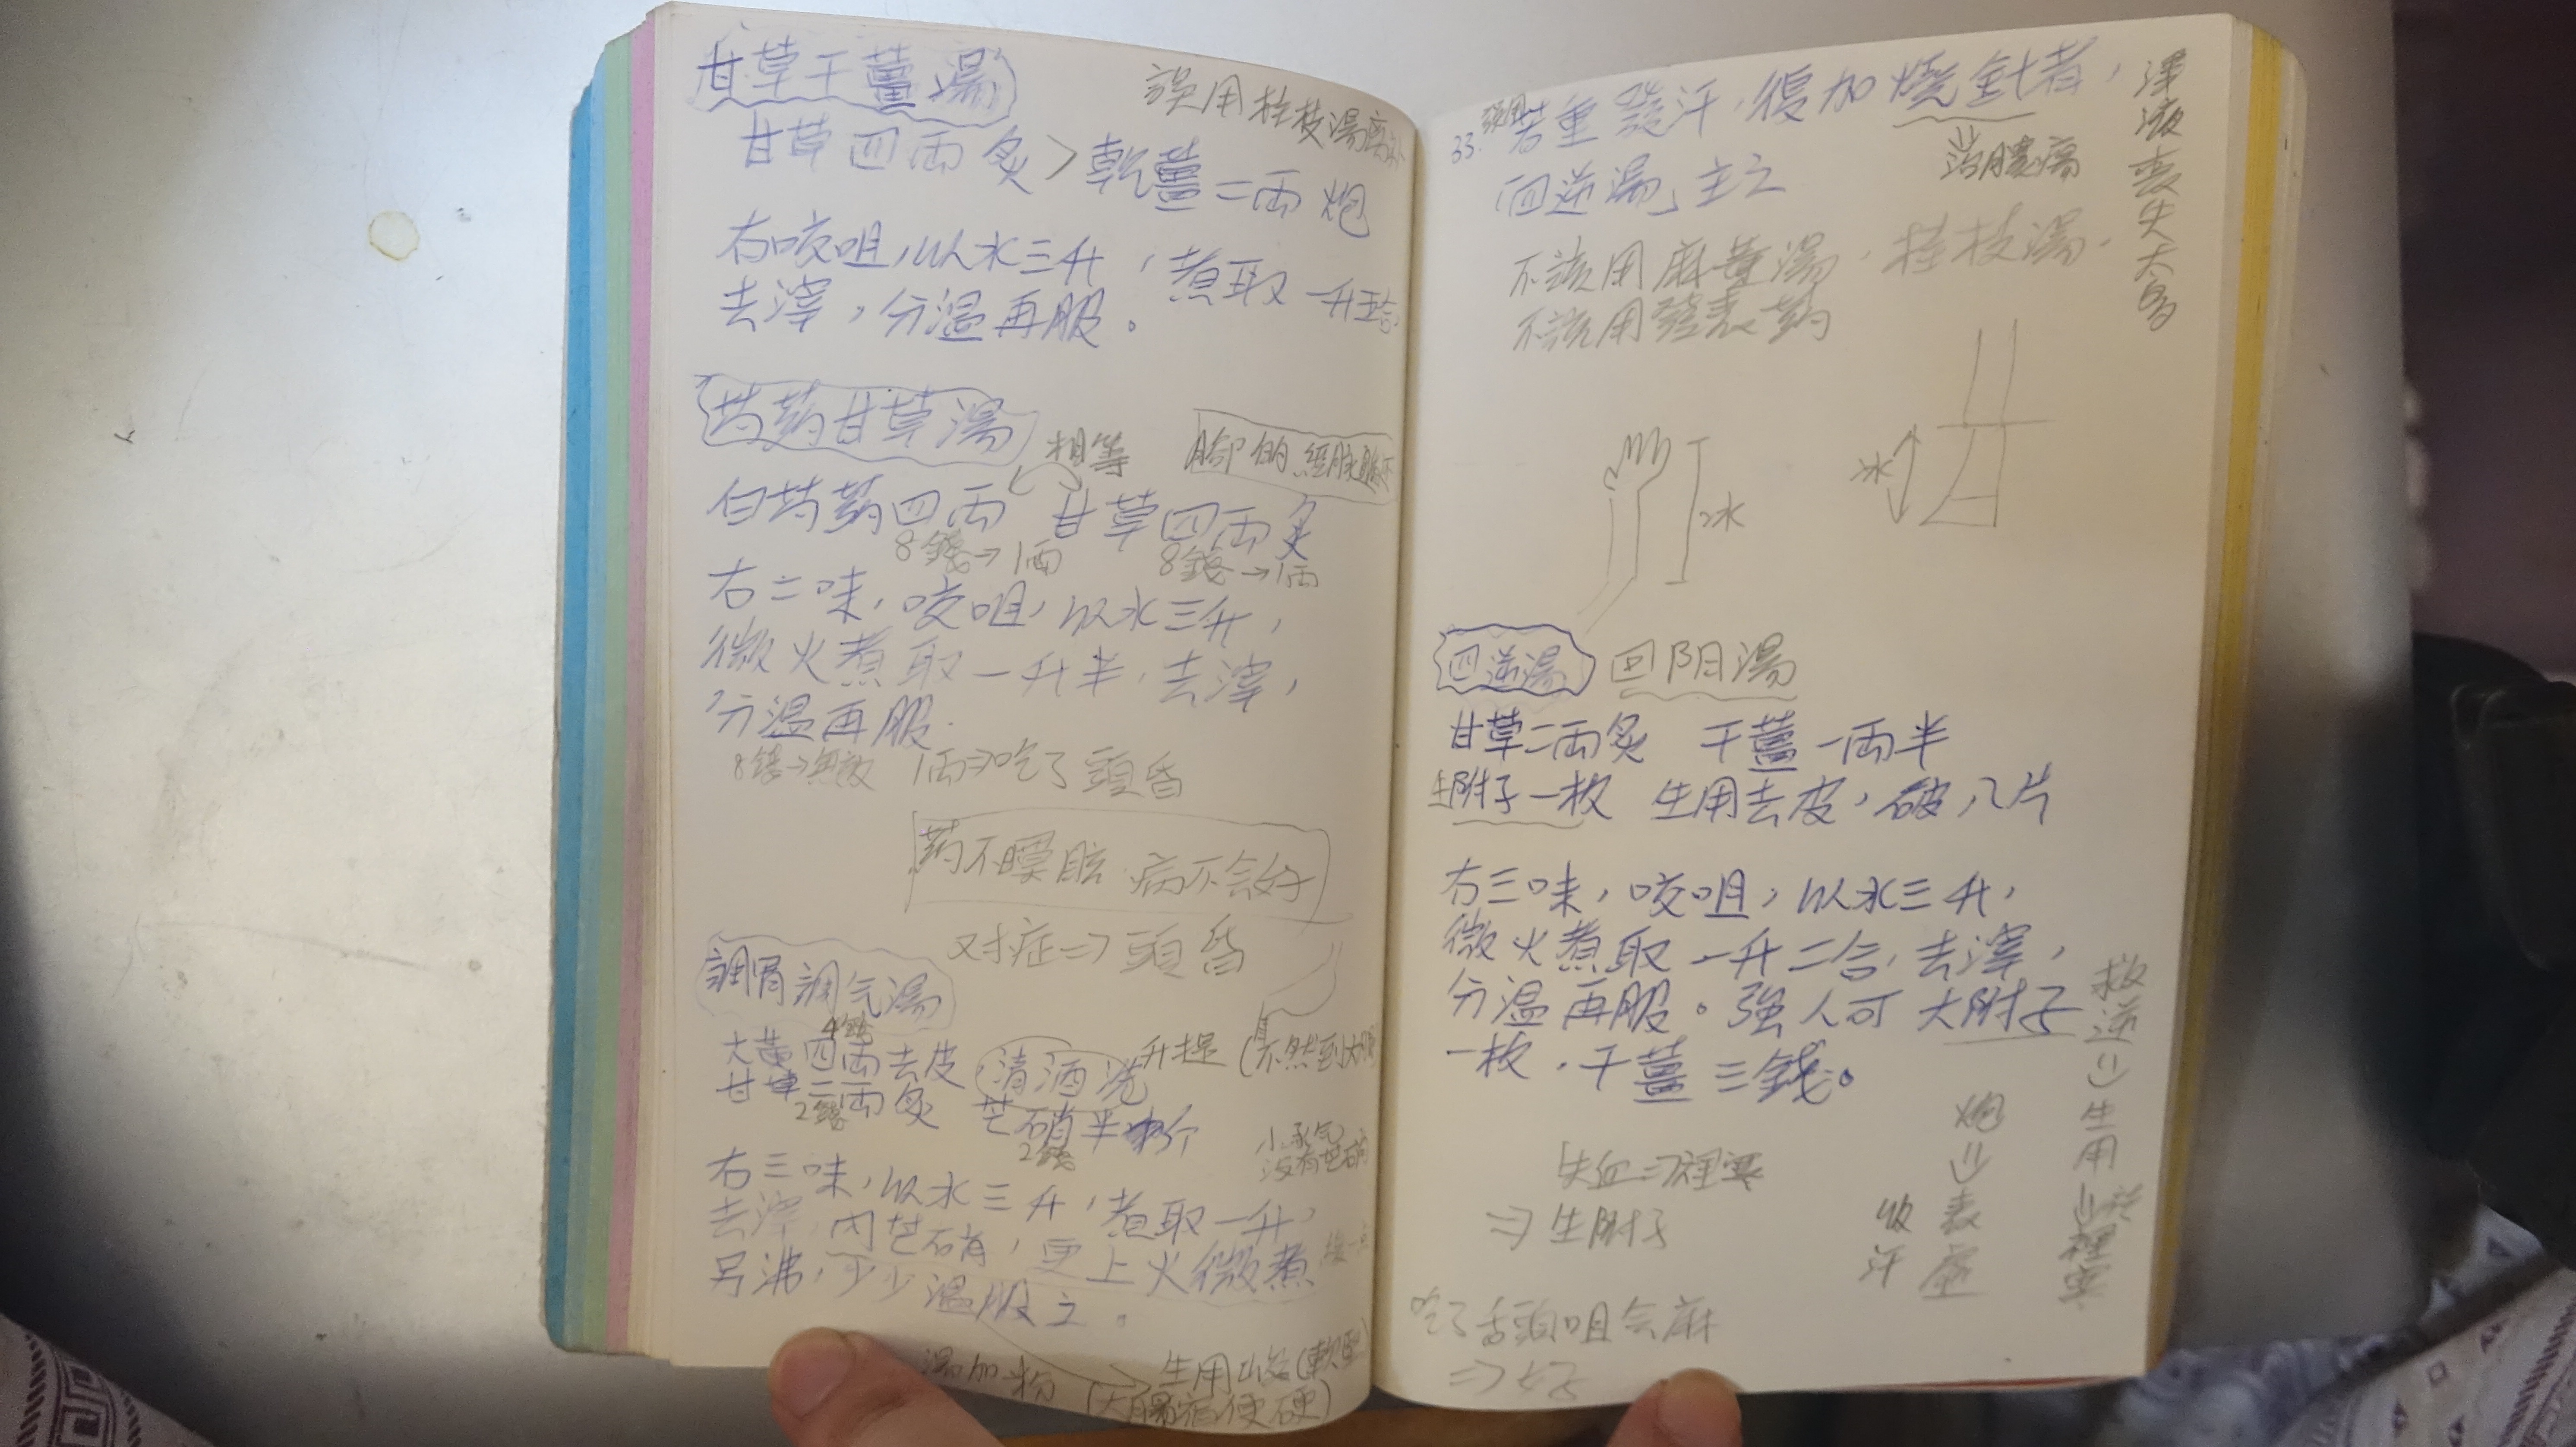 甘草干薑湯
誤用桂枝湯
甘草四兩炙 乾薑二兩炮
右咬咀,以水三升,煮取一升五合
去滓,分溫再服。
芍药甘草湯
相等
腳的經脈
白芍药四兩 甘草四兩炙
8錢→1兩 8錢→1兩
右二味,咬咀,以水三升,
微火煮取一升半,去滓,
分溫再服.
8錢→無效 1兩⇒吃了頭昏
药不瞑眩 病不会好
对症⇒頭昏
調胃調气湯
4錢
大黃四兩去皮 清酒洗
升提
(不然到大腸
甘草二兩炙 芒硝半斤
2錢 2錢
小承气
沒有芒硝
右三味,以水三升,煮取一升,
去滓,內芒硝,更上火微煮
另沸,少少溫服之。
湯加粉
生用
(大腸宿便硬)
33. 若重發汗,復加燒針者,
「四逆湯」主之
津液喪失太多
不該用麻黃湯,桂枝湯.
不該用發表药
冰
冰
四逆湯 回阴湯
甘草二兩炙 干薑一兩半
生附子一枚 生用去皮,破八片
右三味,咬咀,以水三升,
微火煮取一升二合,去滓,
分溫再服。強人可大附子
一枚,干薑三錢。
救逆⇒生用⇒裡寒
炮⇒表虛
收汗
失血⇒裡寒
⇒生附子
吃了舌頭咀会麻
⇒